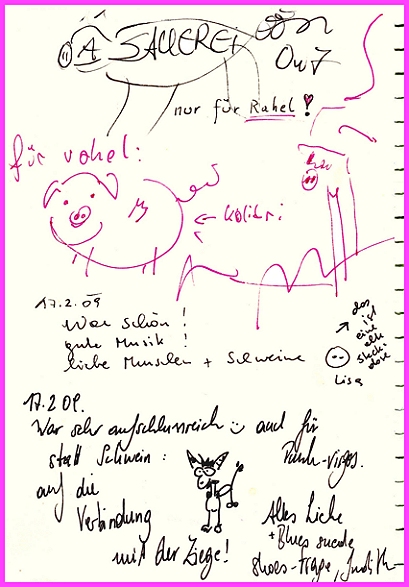 A SAUEREI
nur für Rahel !
für rahel:
← Kolibri
17.2.09
War schön !
gute Musik !
liebe Menschen + Schweine
das
ist
eine
alte
Steck-
dose
Lisa
17.2.09.
War sehr aufschlussreich auch für
statt Schwein :
auf die
Verbindung
mit der Ziege!
Alles Liebe
+ Blues suede
shoes-Frage, Judith